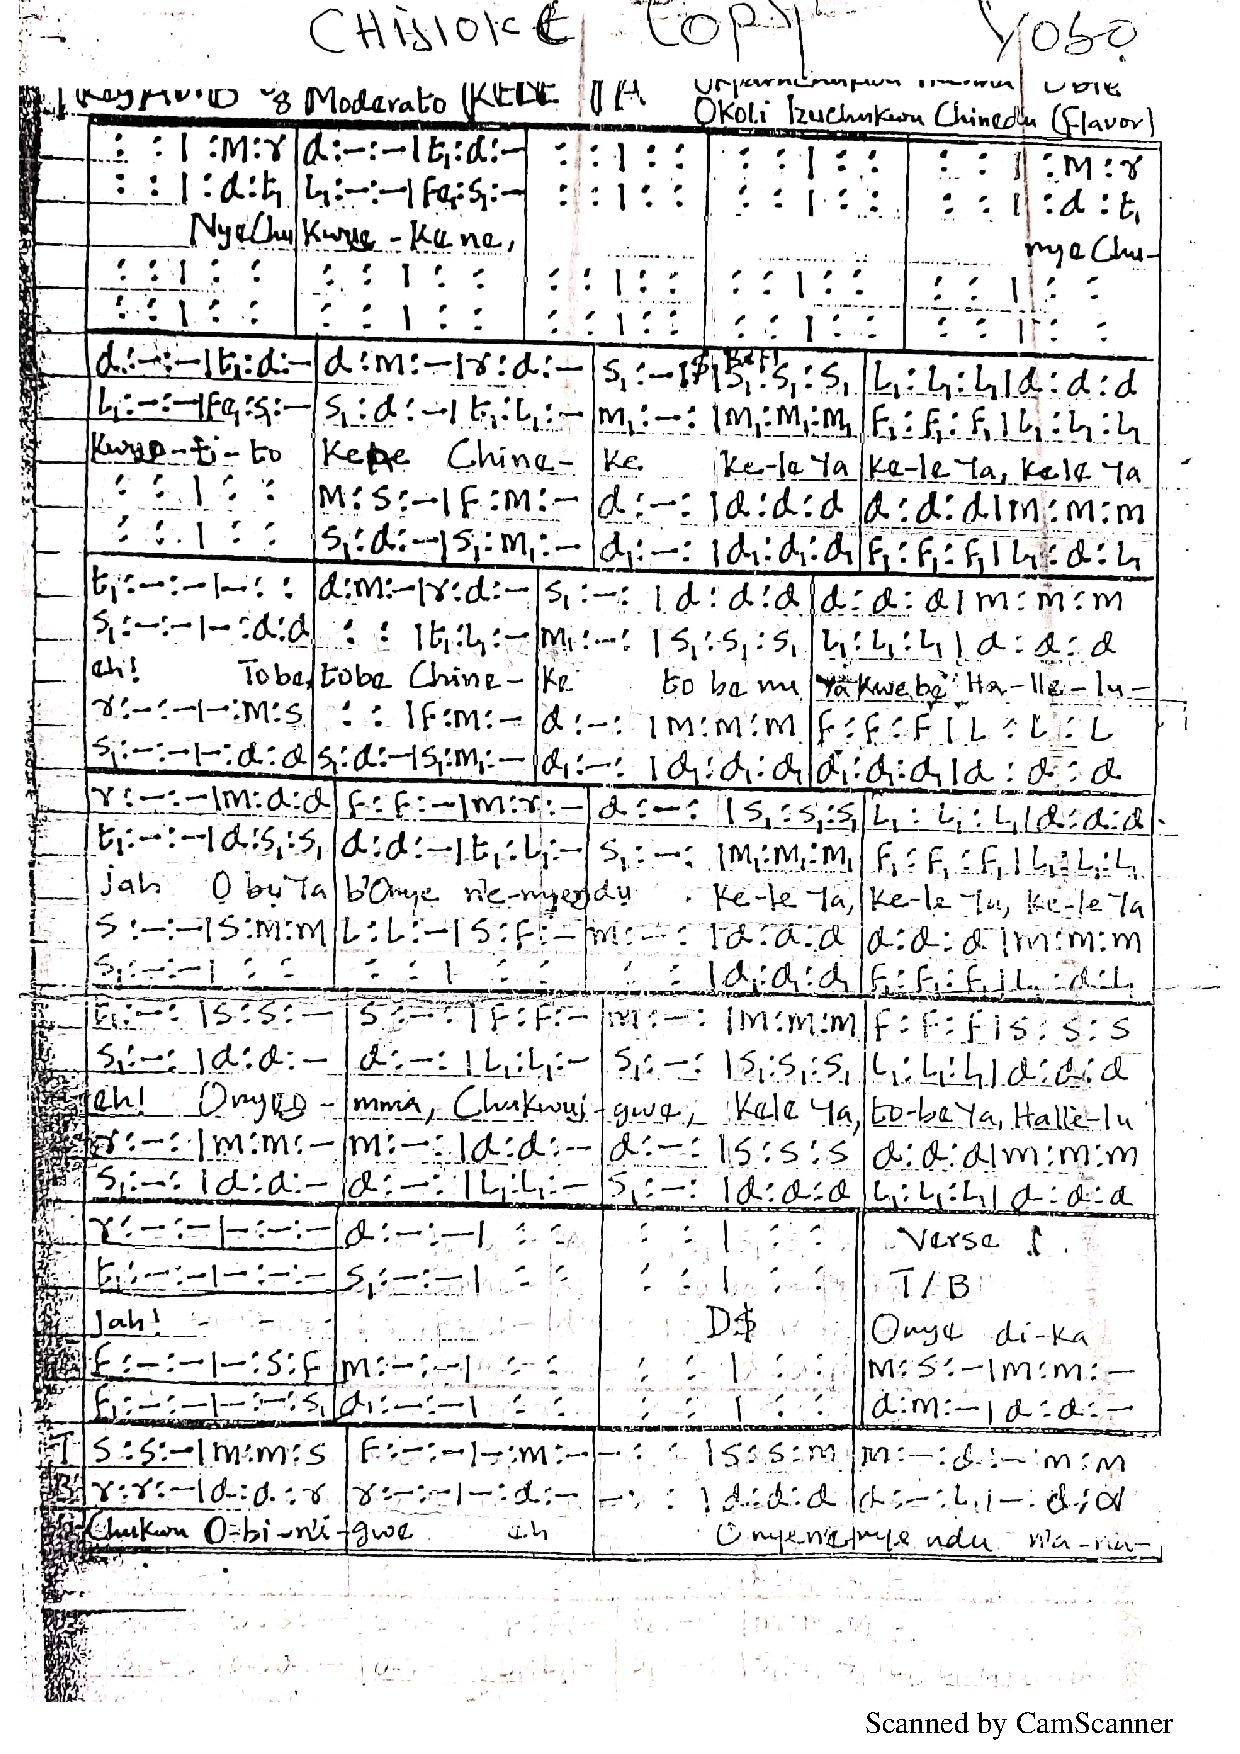 CHIsIOKE COPY YOBO
Moderato KELE YA
Okoli Izuchukwu Chinedu (Flavor)
: : | : m : r | d : – : – | t₁ : d : – | : : | : : | : : | : : | : : | : m : r
: : | : d : t₁ | L₁ : – : – | fe₁ : s₁ : – | : : | : : | : : | : : | : : | : d : t₁
Nye Chu Kwue - Ke ne, nye Chu-
: : | : : | : : | : : | : : | : : | : : | : : | : : | : :
: : | : : | : : | : : | : : | : : | : : | : : | : : | : :
d : – : – | t₁ : d : – | d : m : – | r : d : – | s₁ : – | $ | s₁ : s₁ : s₁ | L₁ : L₁ : L₁ | d : d : d
L₁ : – : – | fe₁ : s₁ : – | s₁ : d : – | t₁ : L₁ : – | m₁ : – : | m₁ : m₁ : m₁ | F₁ : F₁ : F₁ | L₁ : L₁ : L₁
- ti - to Kene Chine - Ke Ke-le Ya Ke-le Ya, Kele Ya
: : | : : | m : s : – | F : m : – | d : – : | d : d : d | d : d : d | m : m : m
: : | : : | s₁ : d : – | s₁ : m₁ : – | d₁ : – : | d₁ : d₁ : d₁ | F₁ : F₁ : F₁ | L₁ : d : L₁
t₁ : – : – | – : : | d : m : – | r : d : – | s₁ : – : | d : d : d | d : d : d | m : m : m
s₁ : – : – | – : d : d | : : | t₁ : L₁ : – | m₁ : – : | s₁ : s₁ : s₁ | L₁ : L₁ : L₁ | d : d : d
eh! Tobe, tobe Chine - Ke to be nu Ya Kwebe Ha - lle - lu -
r : – : – | – : m : s | : : | F : m : – | d : – : | m : m : m | F : F : F | L : L : L
s₁ : – : – | – : d : d | s₁ : d : – | s₁ : m₁ : – | d₁ : – : | d₁ : d₁ : d₁ | d₁ : d₁ : d₁ | d : d : d
r : – : – | m : d : d | F : F : – | m : r : – | d : – : | s₁ : s₁ : s₁ | L₁ : L₁ : L₁ | d : d : d
t₁ : – : – | d : s₁ : s₁ | d : d : – | t₁ : L₁ : – | s₁ : – : | m₁ : m₁ : m₁ | F₁ : F₁ : F₁ | L₁ : L₁ : L₁
jah O bụ Ya b'Onye n'e-nyendu Ke-le Ya, Ke-le Ya, Ke-le Ya
s : – : – | s : m : m | L : L : – | s : F : – | m : – : | d : d : d | d : d : d | m : m : m
s₁ : – : – | : : | : : | : : | : : | d₁ : d₁ : d₁ | F₁ : F₁ : F₁ | L₁ : d : L₁
t₁ : – : | s : s : – | s : – : | F : F : – | m : – : | m : m : m | F : F : F | s : s : s
s₁ : – : | d : d : – | d : – : | L₁ : L₁ : – | s₁ : – : | s₁ : s₁ : s₁ | L₁ : L₁ : L₁ | d : d : d
eh! Onye - mma, Chukwui - gwe, Kele Ya, to-be Ya, Halle-lu
r : – : | m : m : – | m : – : | d : d : – | d : – : | s : s : s | d : d : d | m : m : m
s₁ : – : | d : d : – | d : – : | L₁ : L₁ : – | s₁ : – : | d : d : d | L₁ : L₁ : L₁ | d : d : d
r : – : – | – : – : – | d : – : – | : : | : : | : : | Verse 1.
t₁ : – : – | – : – : – | s₁ : – : – | : : | : : | : : | T/B
Jah! - - - D$ Onye di-ka
F : – : – | – : s : F | m : – : – | : : | : : | : : | m : s : – | m : m : –
F₁ : – : – | – : – : s₁ | d₁ : – : – | : : | : : | : : | d : m : – | d : d : –
T s : s : – | m : m : s | F : – : – | – : m : – | – : : | s : s : m | m : – : d : – m : m
B r : r : – | d : d : r | r : – : – | – : d : – | – : : | d : d : d | d : – : L₁ – : d : d
Chukwu O-bi-n'i-gwe eh Onyene nye ndu n'a-na-
Scanned by CamScanner